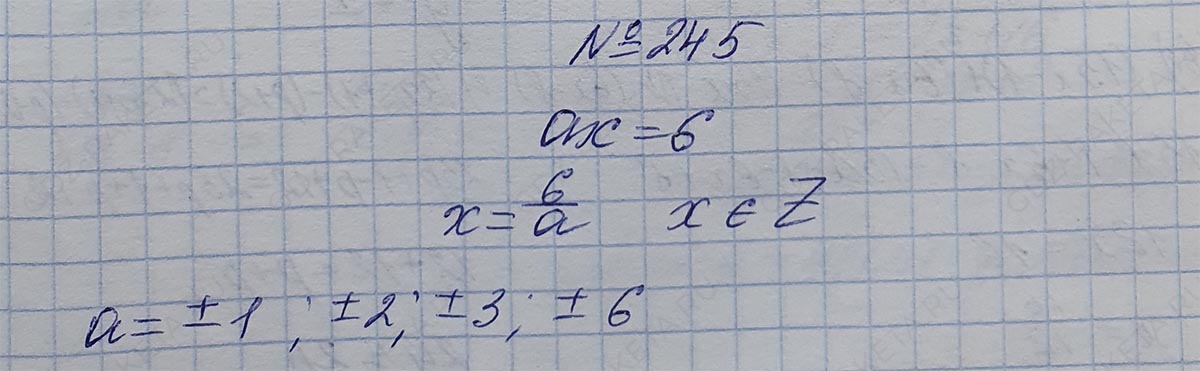 № 245
ax = 6
x = 6/a x ∈ Z
a = ± 1 ; ± 2; ± 3; ± 6